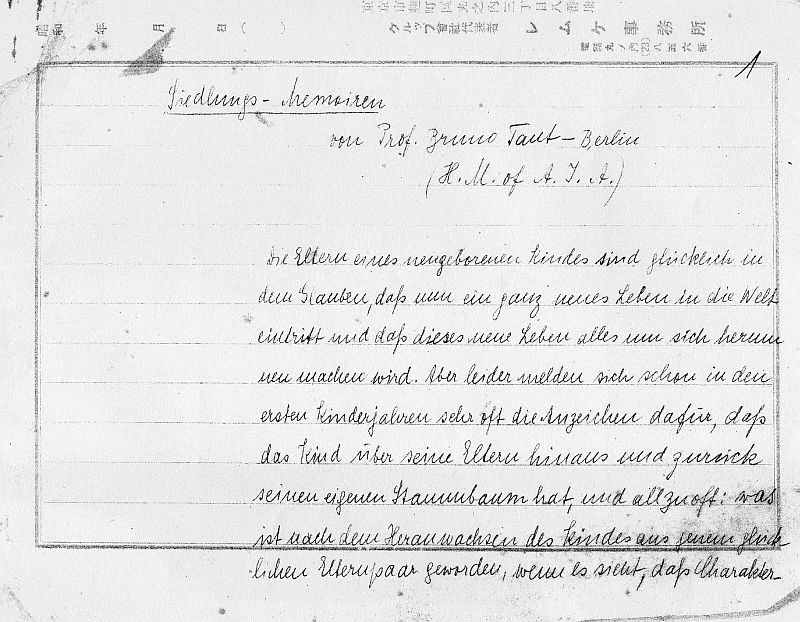 東京市麹町區丸之内三丁目八番地
クルップ會社代表者 レムケ事務所
電話丸ノ内(23)八五六番
昭和 年 月 日 ( )
1
Siedlungs- Memoiren
von Prof. Bruno Taut – Berlin
(H. M. of A. I. A.)
Die Eltern eines neugeborenen Kindes sind glücklich in
dem Glauben, daß nun ein ganz neues Leben in die Welt
eintritt und daß dieses neue Leben alles um sich herum
neu machen wird. Aber leider melden sich schon in den
ersten Kinderjahren sehr oft die Anzeichen dafür, daß
das Kind über seine Eltern hinaus und zurück
seinen eigenen Stammbaum hat, und allzuoft: was
ist nach dem Heranwachsen des Kindes aus jenem glück-
lichen Elternpaar geworden, wenn es sieht, daß Charakter-